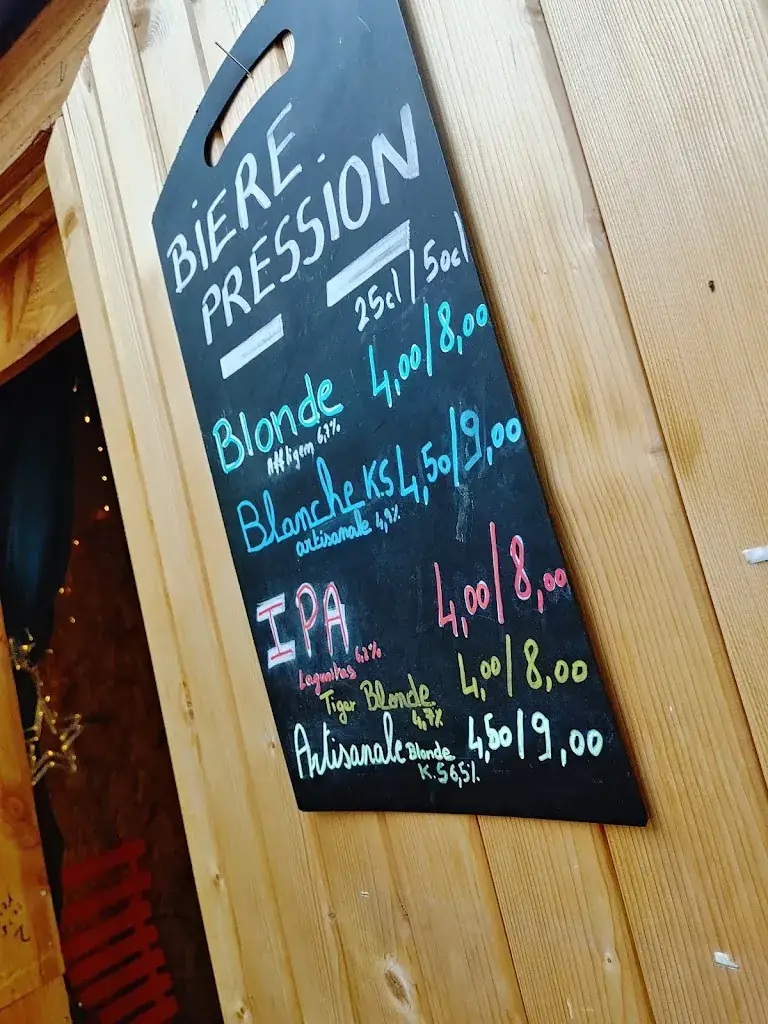 BiERE
PRESSiON
25cl / 50cl
Blonde 4,00/8,00
Affligem 6,7%
Blanche KS 4,50/9,00
artisanale 4,9%
IPA 4,00/8,00
Lagunitas 6,2%
Tiger Blonde 4,00/8,00
4,7%
Artisanale Blonde 4,50/9,00
K.S 6,5%